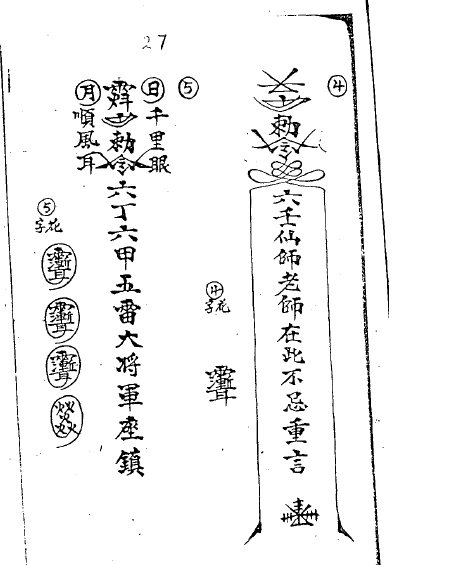 27
④
勅令
六壬仙師老師在此不忌重言
④
花字
⑤
日千里眼
勅令六丁六甲五雷大将軍座鎮
月順風耳
⑤
花字